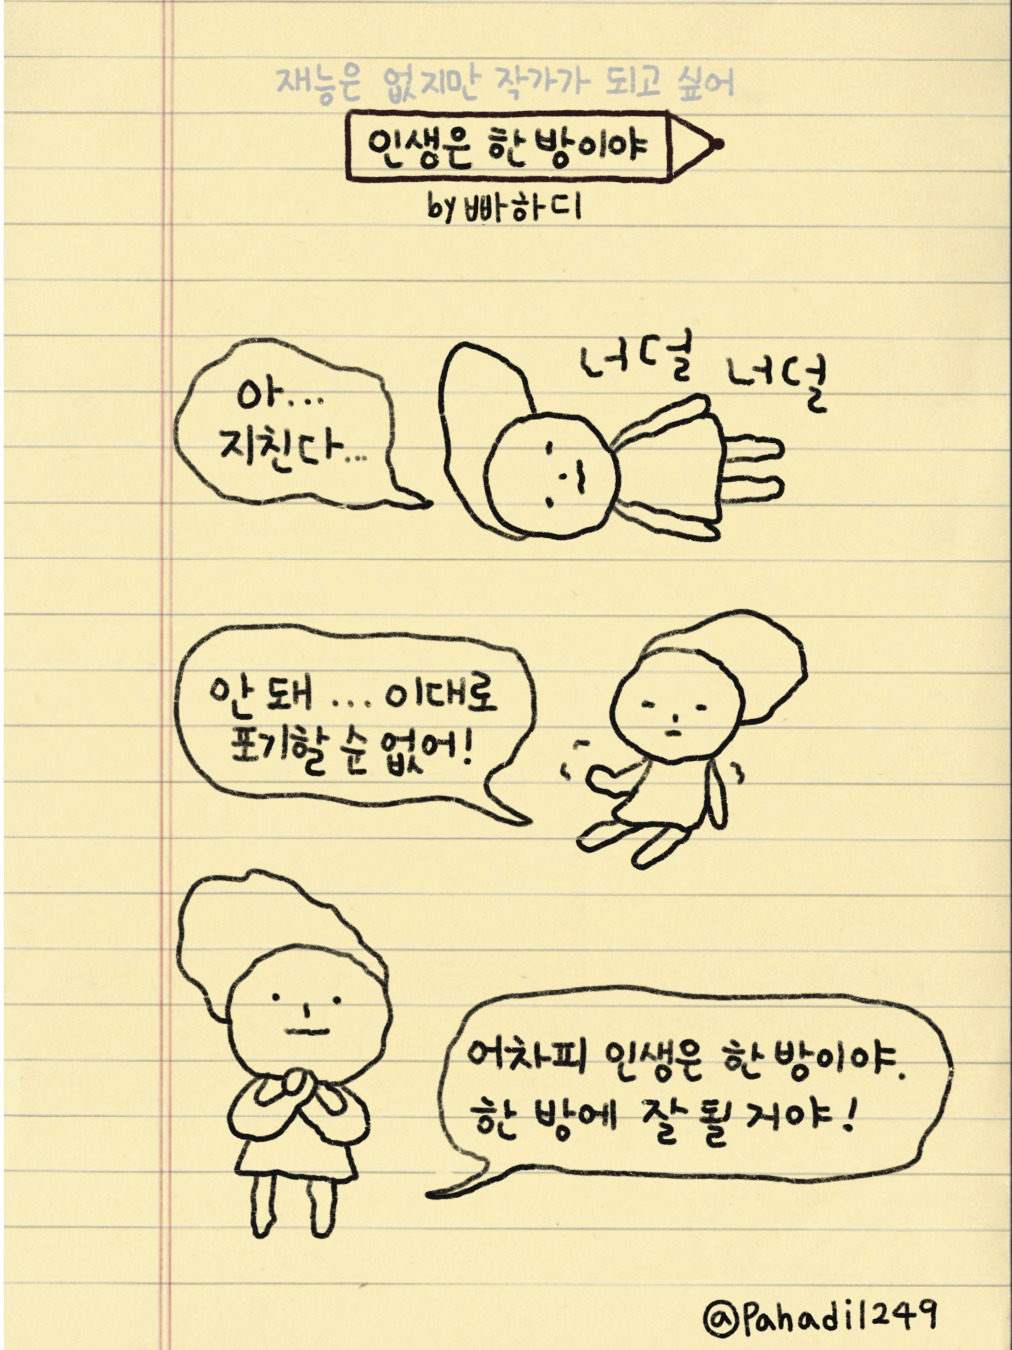 재능은 없지만 작가가 되고 싶어
인생은 한 방이야
by 빠하디
너덜 너덜
아...
지친다...
안 돼 ... 이대로
포기할 순 없어!
어차피 인생은 한 방이야.
한 방에 잘 될 거야!
@pahadi1249